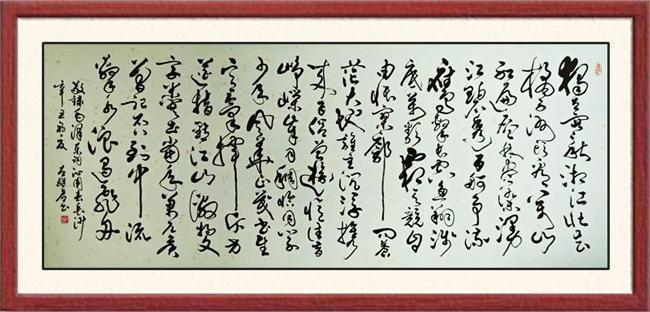 独立寒秋湘江北去
橘子洲头看万山
红遍层林尽染漫
江碧透百舸争流
鹰击长空鱼翔浅
底万类霜天竞自
由怅寥廓问苍
茫大地谁主沉浮携
来百侣曾游忆往昔
峥嵘岁月稠恰同学
少年风华正茂书生
意气挥斥方
遒指点江山激扬文
字粪土当年万户侯
曾记否到中流
击水浪遏飞舟
敬录毛泽东词沁园春长沙
辛丑初夏 书